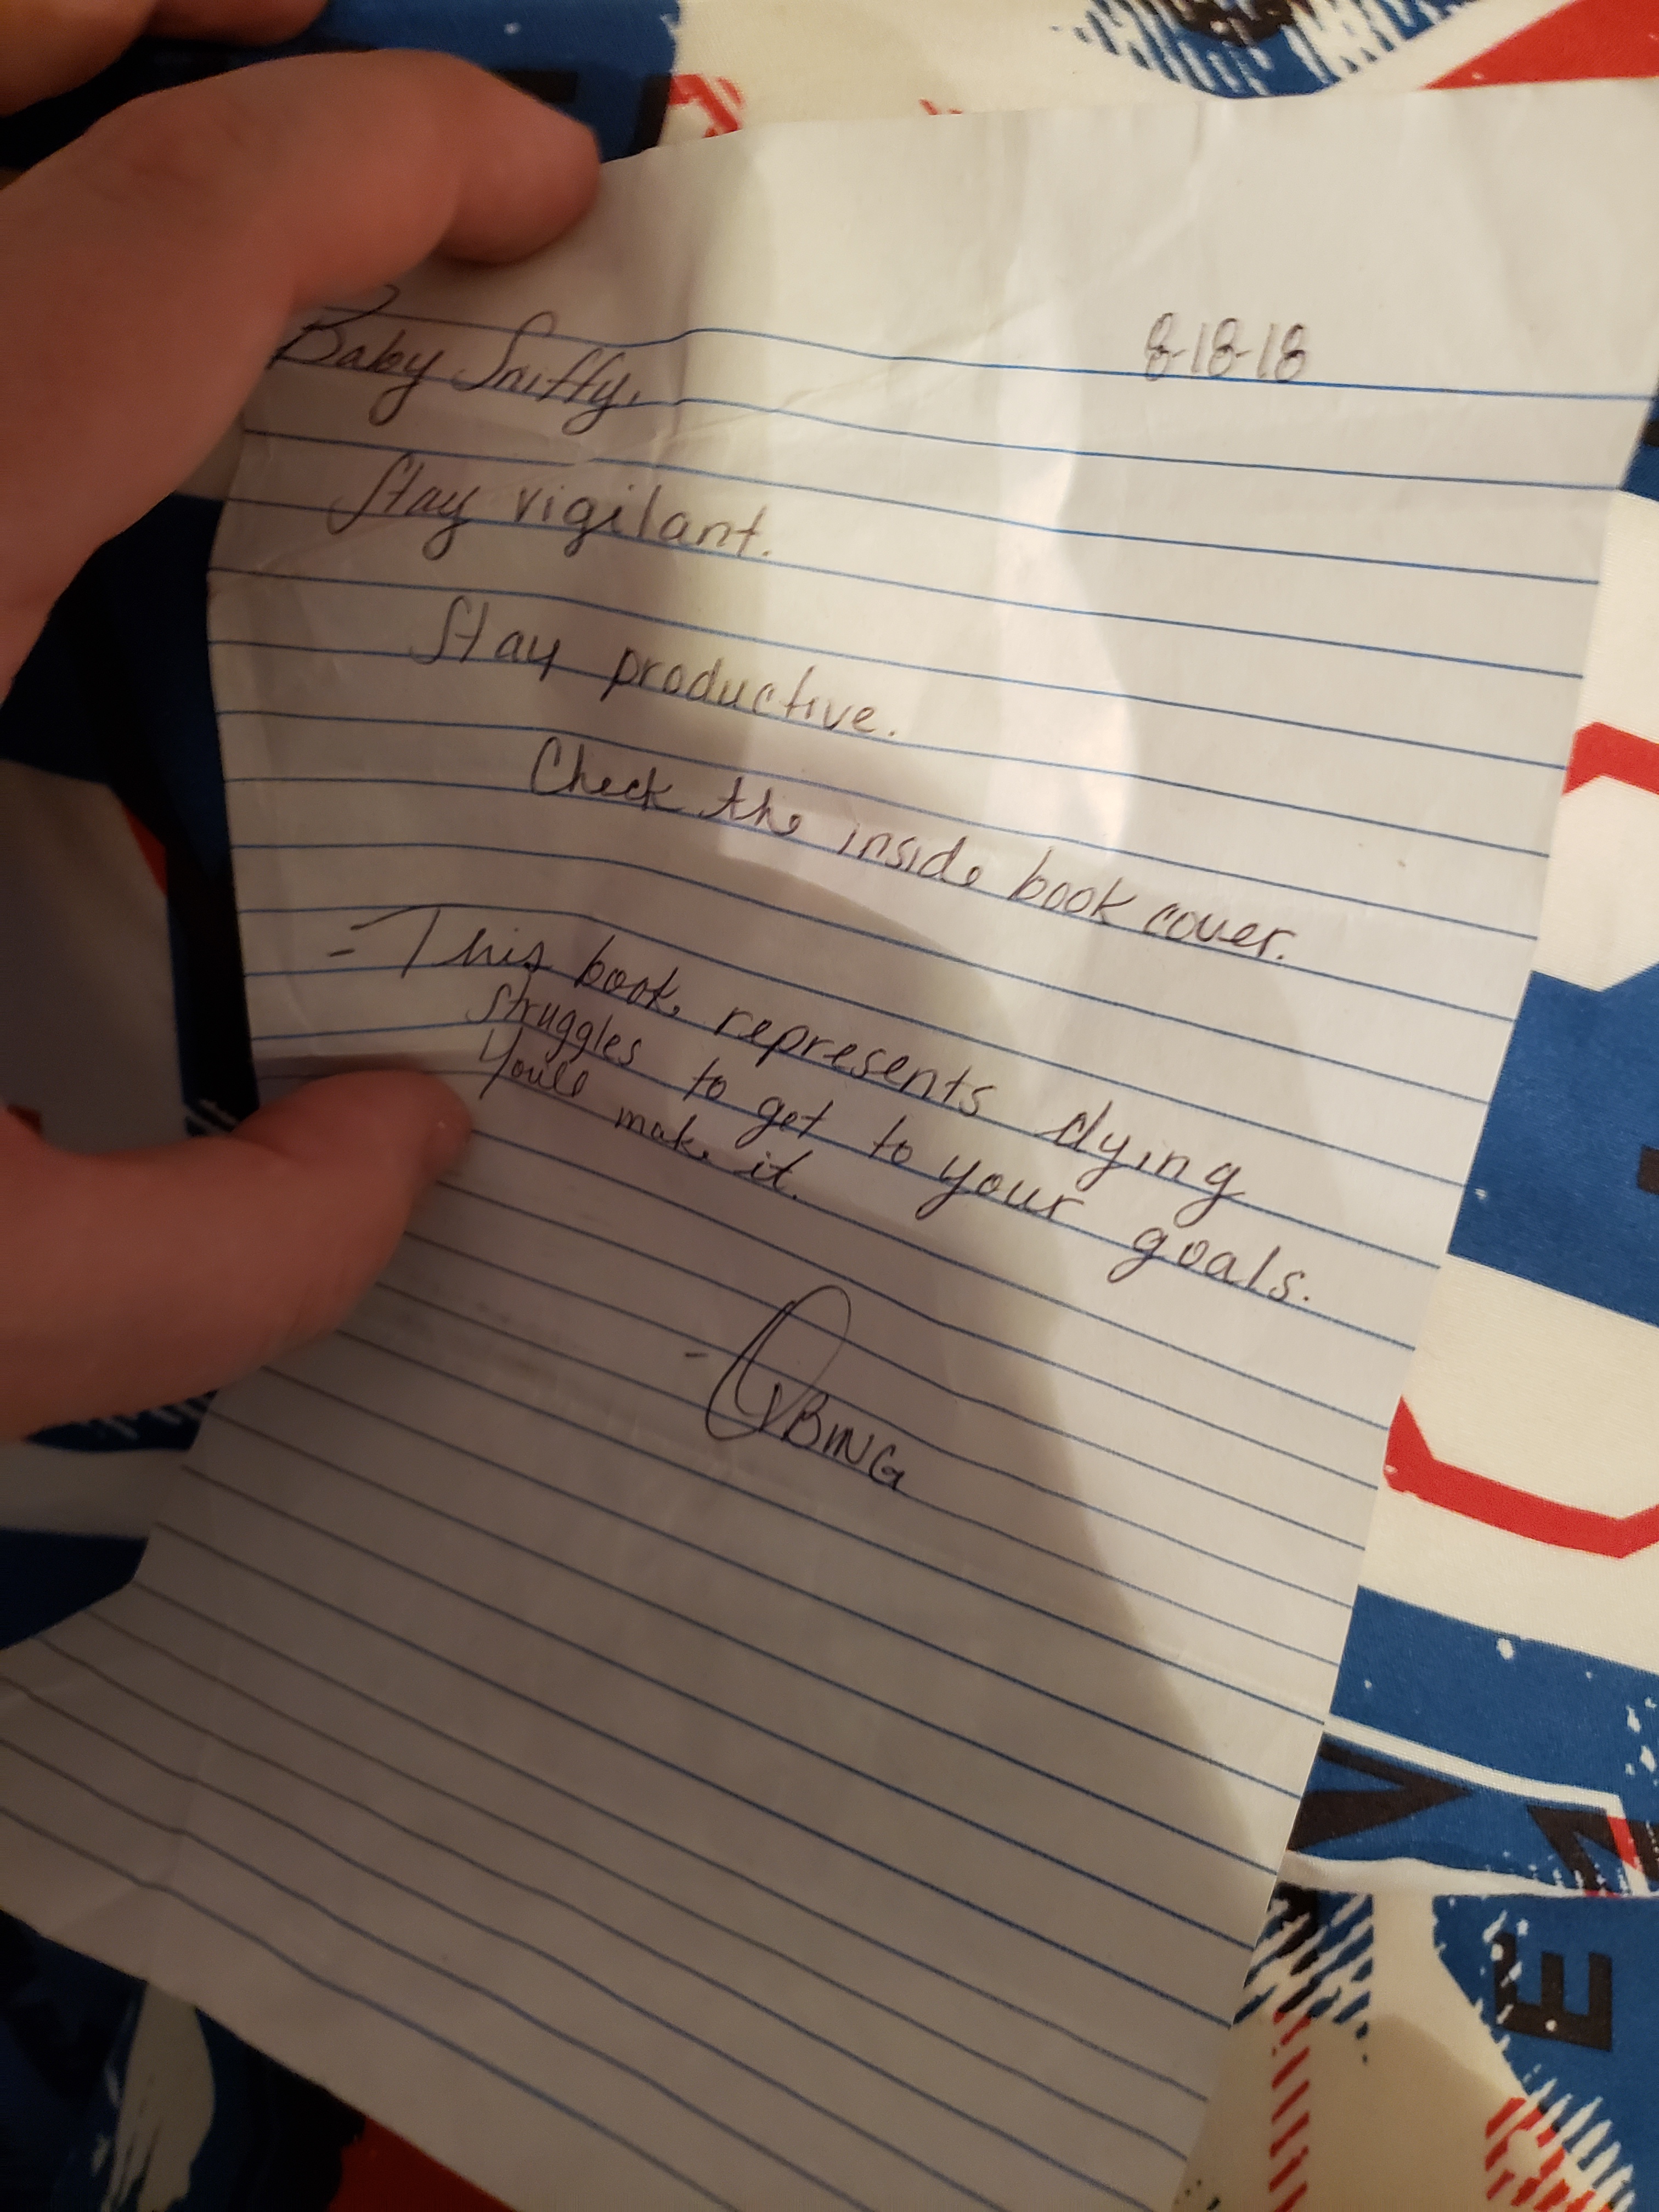 8-18-18
Baby Sniffy,
Stay vigilant.
Stay productive.
Check the inside book cover.
- This book represents dying
struggles to get to your goals.
You'll make it.
E
V
E